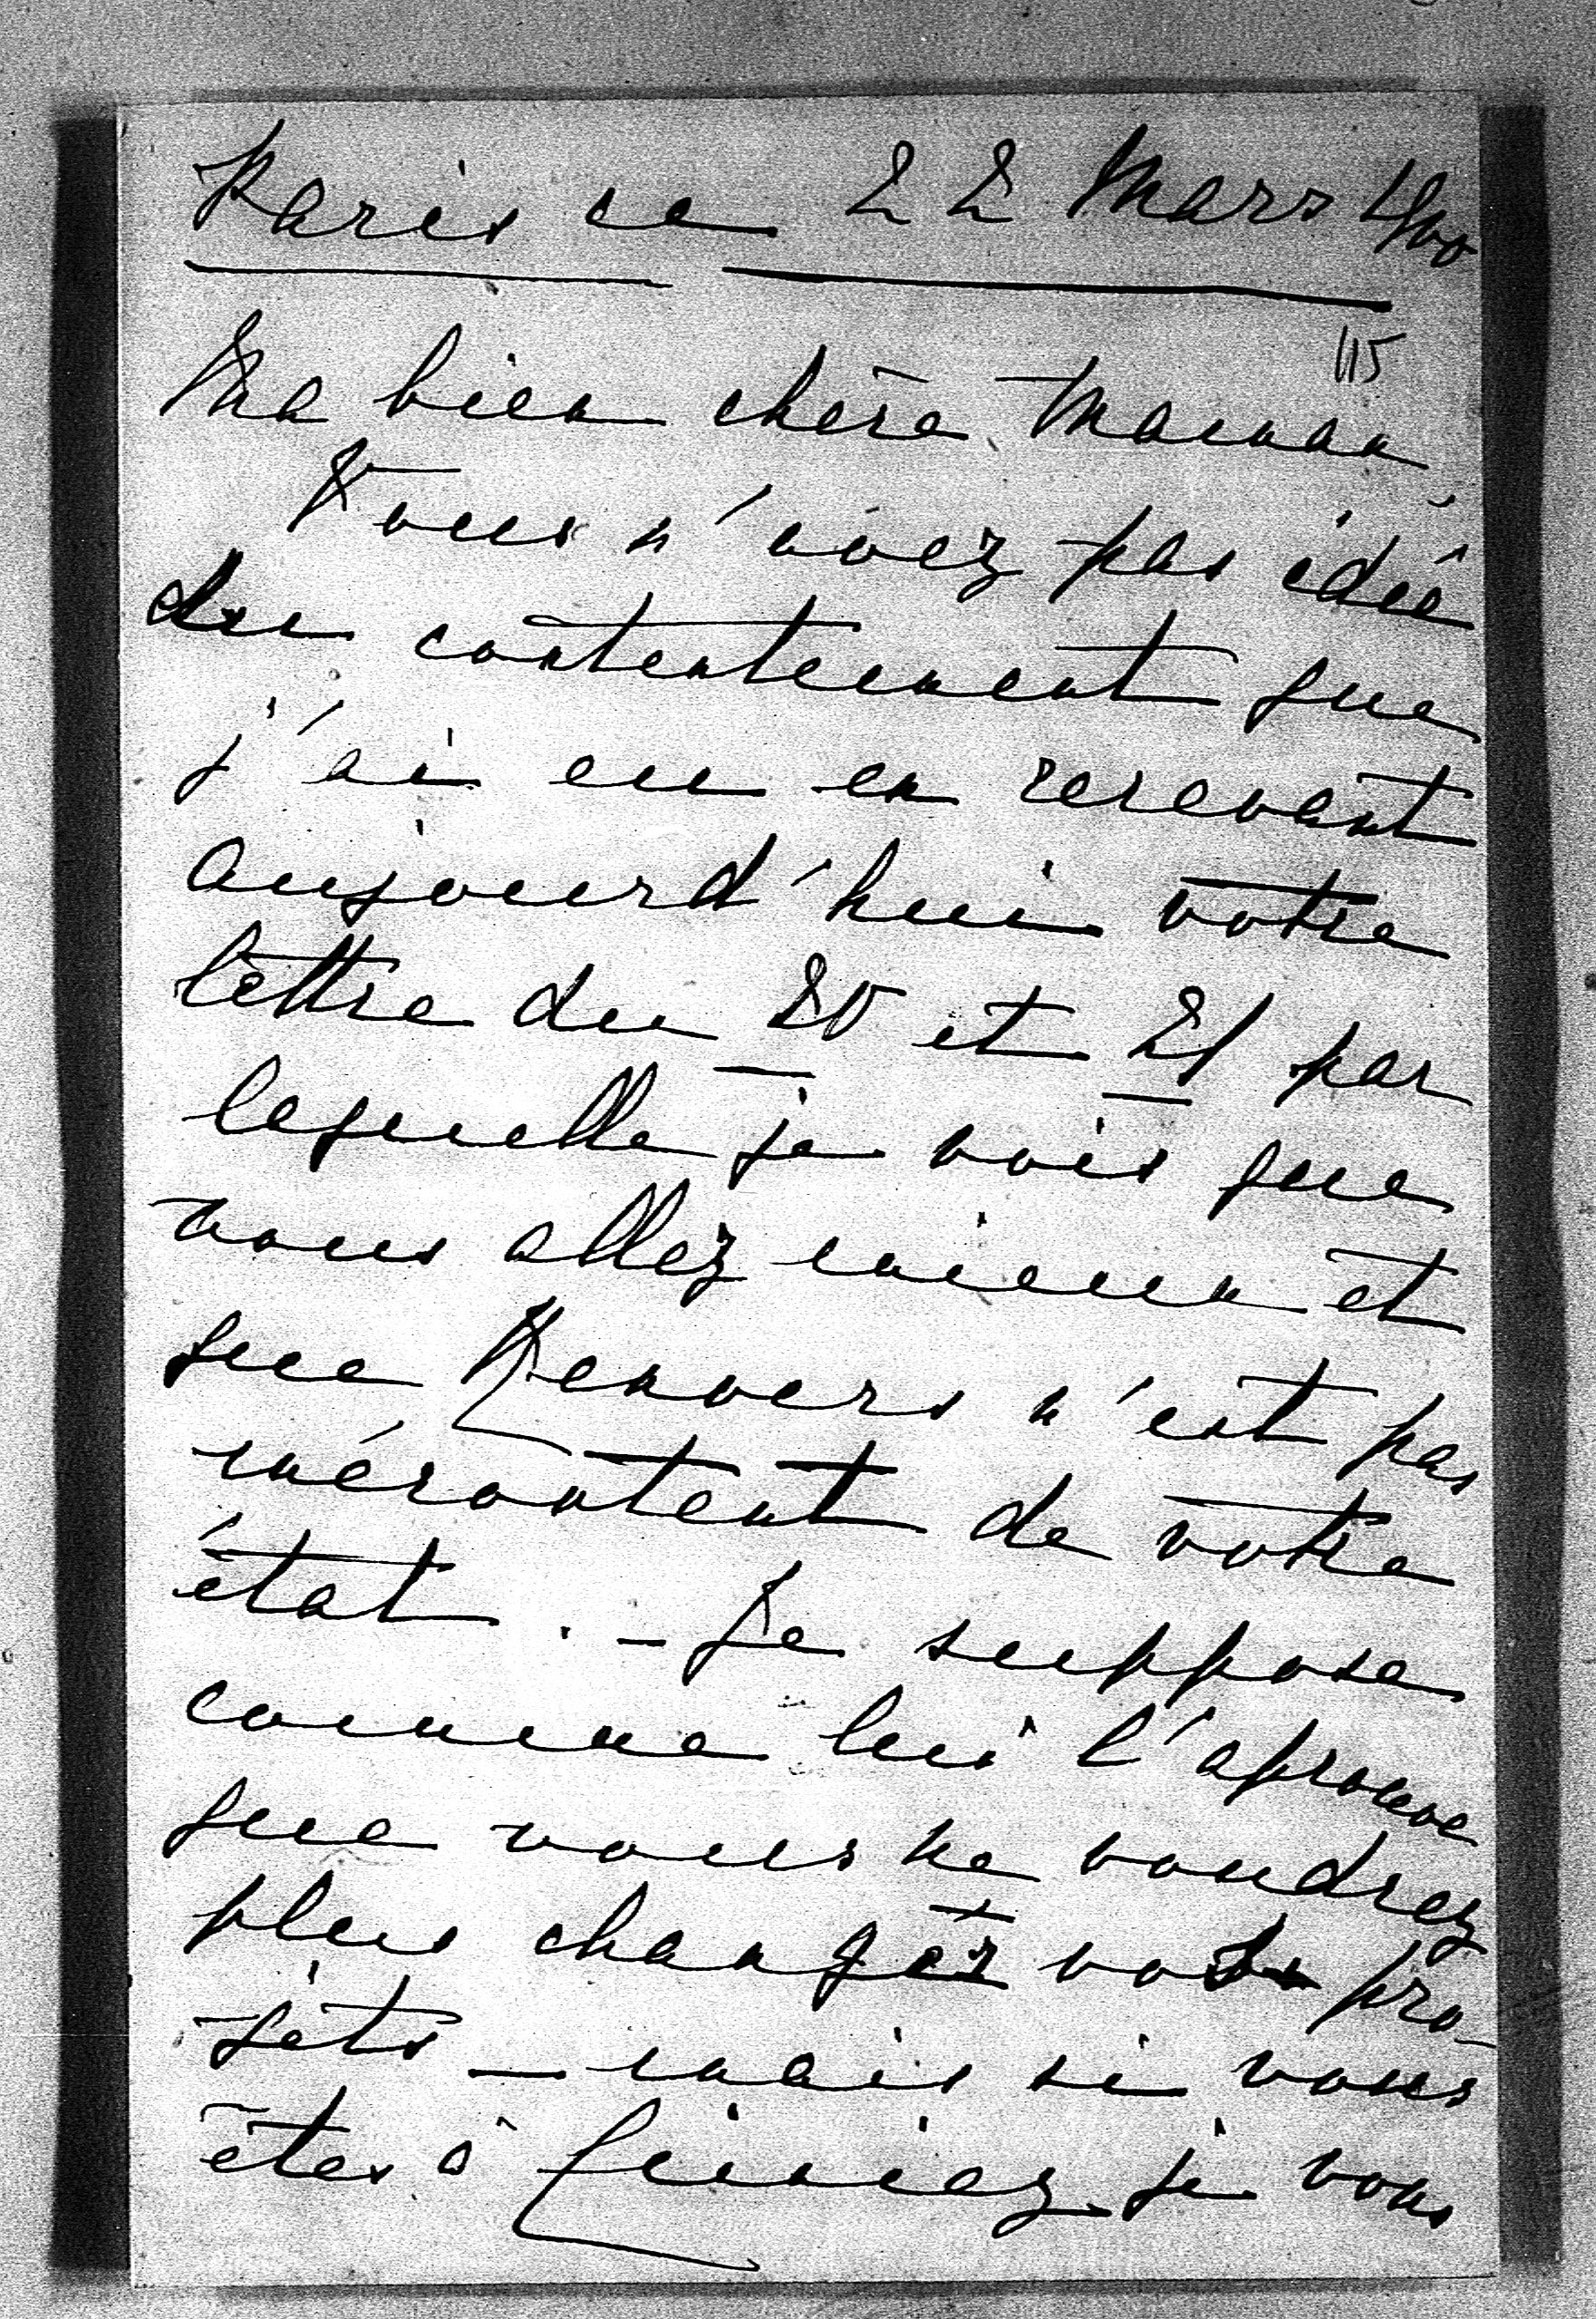 Paris ce 22 Mars 1900
115
Ma bien chère Maman
Vous n'avez pas idée
du contentement que
j'ai eu en recevant
aujourd'hui votre
lettre du 20 et 21 par
lequelle je vois que
vous allez mieux et
que Renvers n'est pas
mécontent de votre
état. - Je suppose
comme lui l'aprouve
que vous ne voudrez
plus changer vos pro-
jets - mais si vous
êtes à je vous